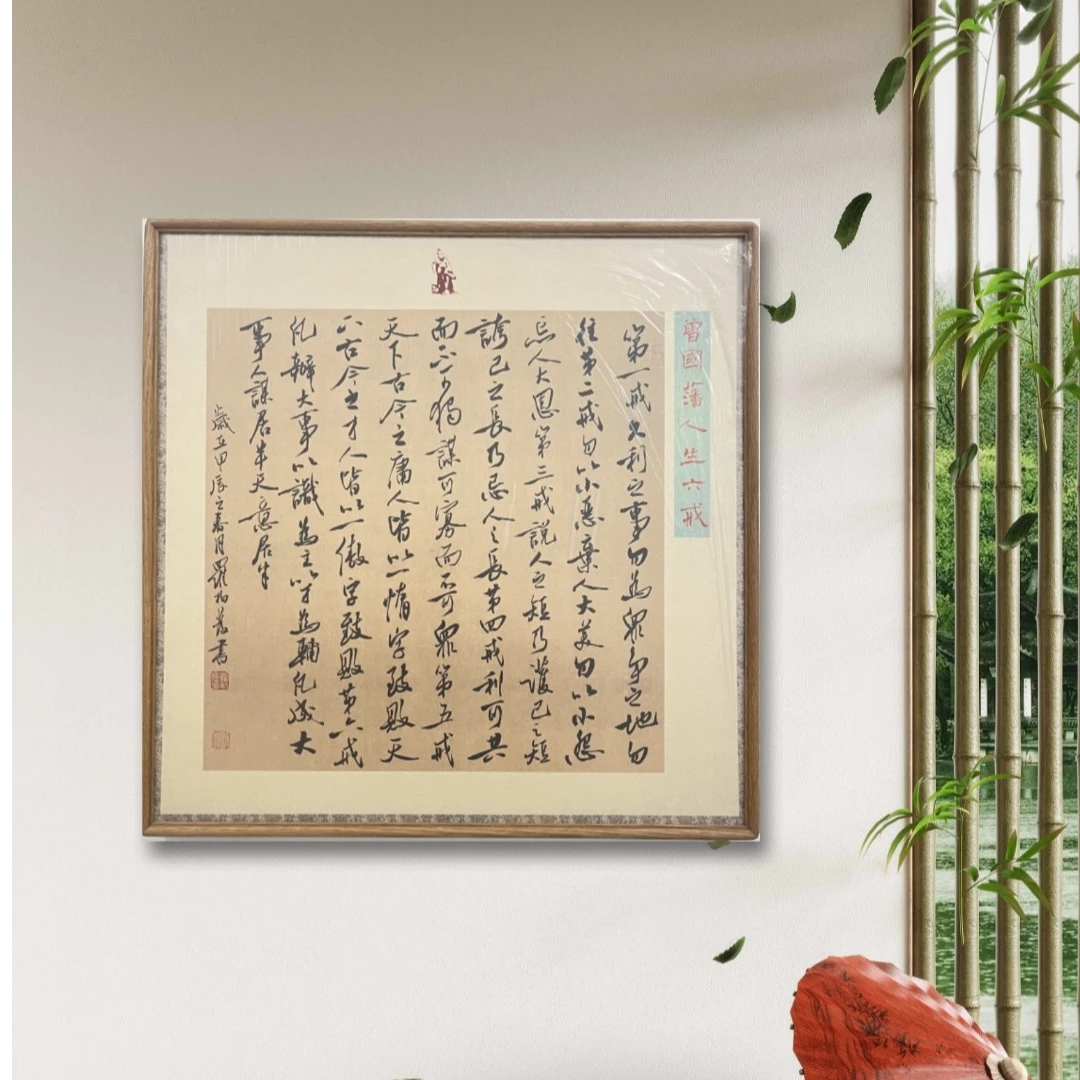 曾國藩人生六戒
第一戒久利之事勿為眾爭之地勿
往第二戒勿以小惡棄人大美勿以小怨
忘人大恩第三戒說人之短乃護己之短
誇己之長乃忌人之長第四戒利可共
而不可獨謀可寡而不可眾第五戒
天下古今之庸人皆以一惰字致敗天
下古今之才人皆以一傲字致敗第六戒
凡辦大事以識為主以才為輔凡成大
事人謀居半天意居半
歲在甲辰之春月羅柏書